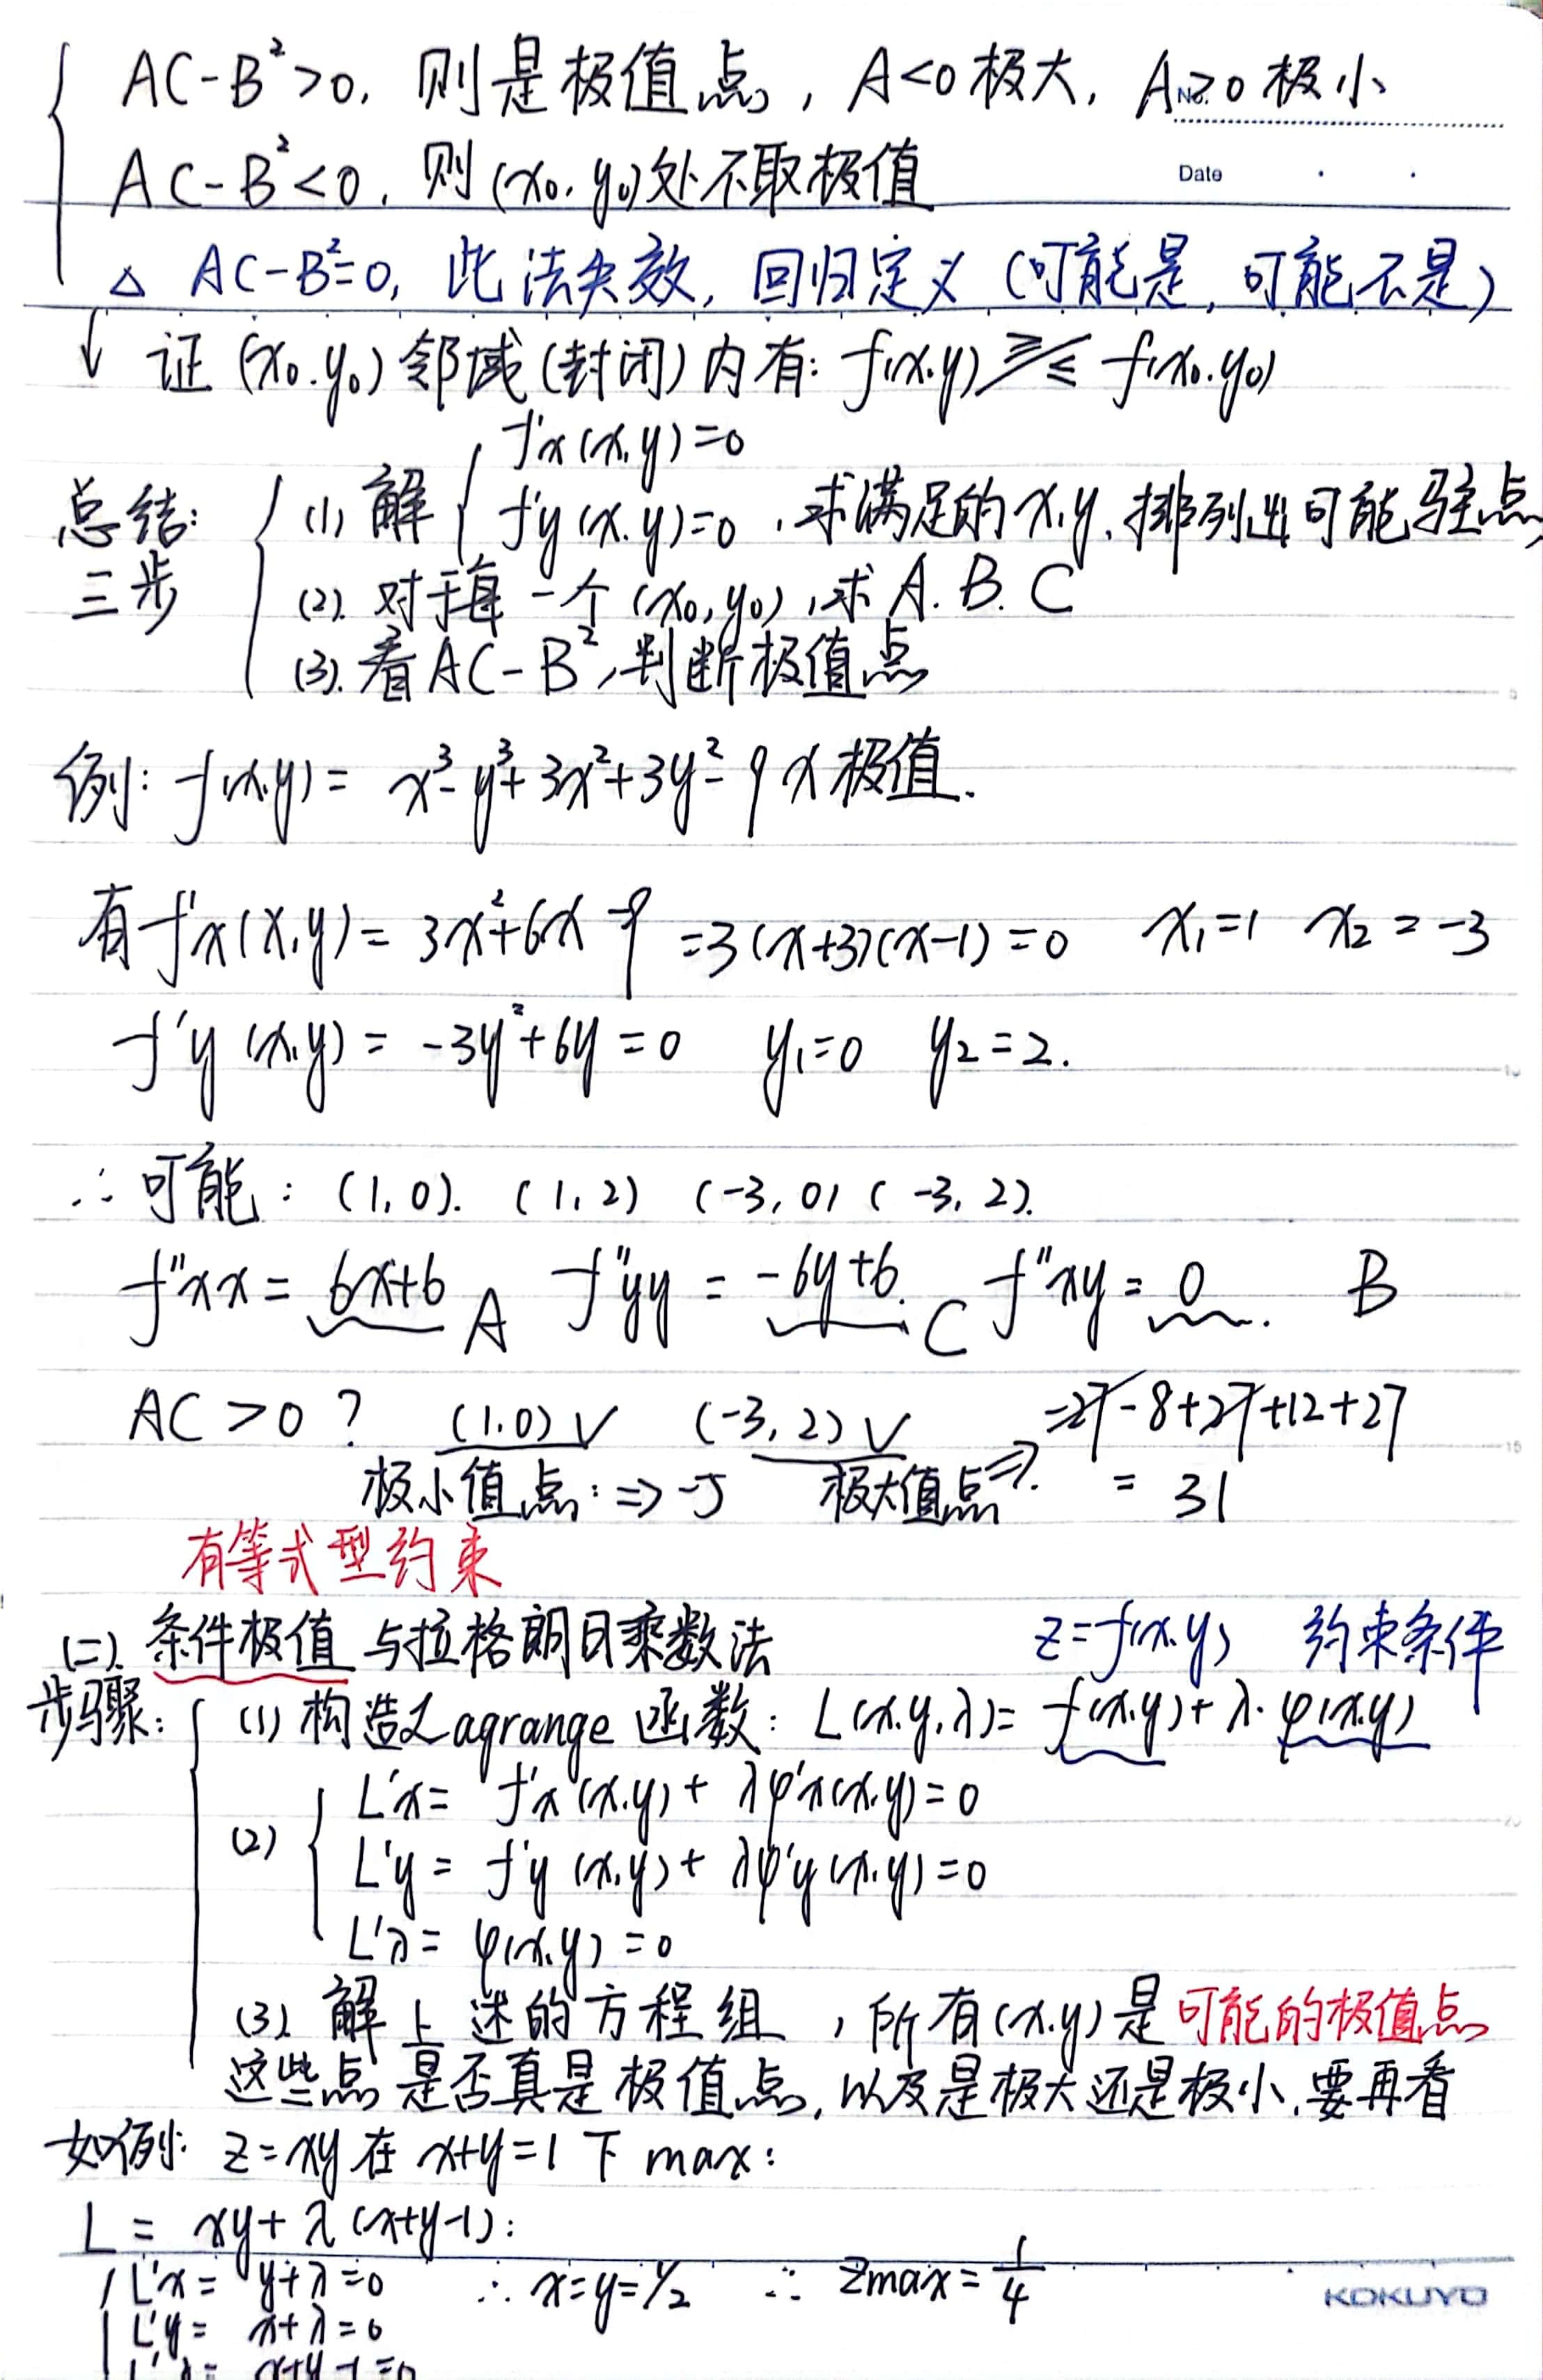 AC-B²>0, 则是极值点, A<0极大, A>0极小
No.
AC-B²<0, 则(x₀,y₀)处不取极值
Date
△ AC-B²=0, 此法失效, 回归定义(可能是,可能不是)
↓ 证(x₀,y₀)邻域(封闭)内有: f(x,y) ≥/≤ f(x₀,y₀)
总结: 三步
(1) 解 { f'x(x,y)=0
f'y(x,y)=0 ,求满足的x,y,排列出可能驻点
(2). 对于每一个(x₀,y₀),求A.B.C
(3). 看AC-B²,判断极值点
例: f(x,y)= x³-y³+3x²+3y²-9x极值.
有f'x(x,y)= 3x²+6x-9 =3(x+3)(x-1)=0 x₁=1 x₂=-3
f'y(x,y)= -3y²+6y=0 y₁=0 y₂=2.
∴可能: (1,0). (1,2) (-3,0) (-3,2).
f''xx= 6x+6 A f''yy = -6y+6. C f''xy=0. B
AC>0? (1,0)√ (-3,2)√ -27-8+27+12+27
极小值点: ⇒ -5 极大值点⇒. = 31
有等式型约束
(二). 条件极值与拉格朗日乘数法 z=f(x,y) 约束条件
步骤: (1) 构造Lagrange函数: L(x,y,λ)= f(x,y)+λ·φ(x,y)
(2) { L'x= f'x(x,y)+ λφ'x(x,y)=0
L'y= f'y(x,y)+ λφ'y(x,y)=0
L'λ= φ(x,y)=0
(3) 解上述的方程组 ,所有(x,y)是可能的极值点
这些点是否真是极值点,以及是极大还是极小,要再看
如例: z=xy在x+y=1下max:
L= xy+λ(x+y-1):
L'x= y+λ=0 ∴ x=y=1/2 ∴ Zmax=1/4
KOKUYO
L'y= x+λ=0
L'λ= x+y-1=0